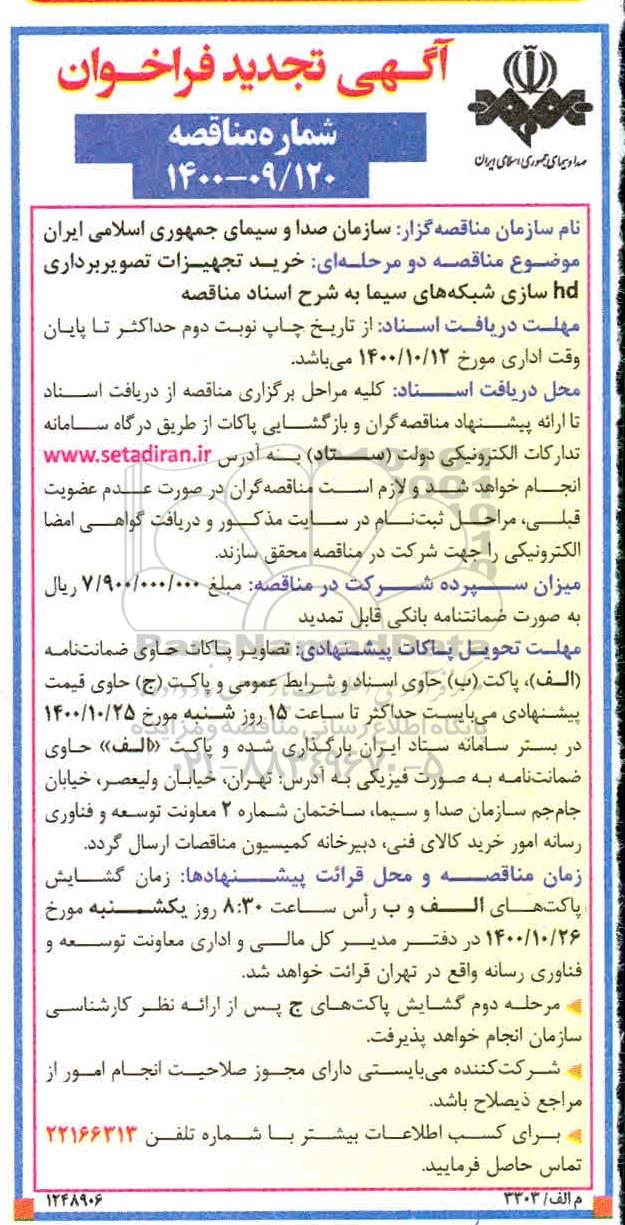 آگهی تجدید فراخوان
صدا و سیمای جمهوری اسلامی ایران
شماره مناقصه
۱۴۰۰-۰۹/۱۲۰
نام سازمان مناقصه‌گزار: سازمان صدا و سیمای جمهوری اسلامی ایران
موضوع مناقصه دو مرحله‌ای: خرید تجهیزات تصویربرداری
hd سازی شبکه‌های سیما به شرح اسناد مناقصه
مهلت دریافت اسناد: از تاریخ چاپ نوبت دوم حداکثر تا پایان
وقت اداری مورخ ۱۴۰۰/۱۰/۱۲ می‌باشد.
محل دریافت اسناد: کلیه مراحل برگزاری مناقصه از دریافت اسناد
تا ارائه پیشنهاد مناقصه‌گران و بازگشایی پاکات از طریق درگاه سامانه
تدارکات الکترونیکی دولت (ستاد) به آدرس www.setadiran.ir
انجام خواهد شد و لازم است مناقصه‌گران در صورت عدم عضویت
قبلی، مراحل ثبت‌نام در سایت مذکور و دریافت گواهی امضا
الکترونیکی را جهت شرکت در مناقصه محقق سازند.
میزان سپرده شرکت در مناقصه: مبلغ ۷/۹۰۰/۰۰۰/۰۰۰ ریال
به صورت ضمانتنامه بانکی قابل تمدید
ParsNamadData
مهلت تحویل پاکات پیشنهادی: تصاویر پاکات حاوی ضمانت‌نامه
(الف)، پاکت (ب) حاوی اسناد و شرایط عمومی و پاکت (ج) حاوی قیمت
پیشنهادی می‌بایست حداکثر تا ساعت ۱۵ روز شنبه مورخ ۱۴۰۰/۱۰/۲۵
پایگاه اطلاع رسانی مناقصه و مزایده
در بستر سامانه ستاد ایران بارگذاری شده و پاکت «الف» حاوی
۰۲۱-۸۸۳۴۹۶۷۰-۵
ضمانت‌نامه به صورت فیزیکی به آدرس: تهران، خیابان ولیعصر، خیابان
جام‌جم سازمان صدا و سیما، ساختمان شماره ۲ معاونت توسعه و فناوری
رسانه امور خرید کالای فنی، دبیرخانه کمیسیون مناقصات ارسال گردد.
زمان مناقصه و محل قرائت پیشنهادها: زمان گشایش
پاکت‌های الف و ب رأس ساعت ۸:۳۰ روز یکشنبه مورخ
۱۴۰۰/۱۰/۲۶ در دفتر مدیر کل مالی و اداری معاونت توسعه و
فناوری رسانه واقع در تهران قرائت خواهد شد.
مرحله دوم گشایش پاکت‌های ج پس از ارائه نظر کارشناسی
سازمان انجام خواهد پذیرفت.
شرکت‌کننده می‌بایستی دارای مجوز صلاحیت انجام امور از
مراجع ذیصلاح باشد.
برای کسب اطلاعات بیشتر با شماره تلفن ۲۲۱۶۶۳۱۳
تماس حاصل فرمایید.
م الف/ ۳۳۰۳
۱۲۴۸۹۰۶